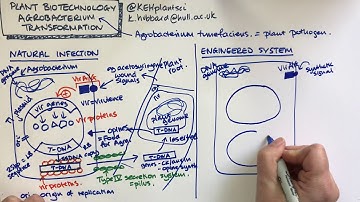 PLANT BIOTECHNOLOGY
AGROBACTERIUM
TRANSFORMATION
@KEHplantsci
k.hibbard@hull.ac.uk
Agrobacterium tumefaciens = plant pathogen.
NATURAL INFECTION
ENGINEERED SYSTEM
Agrobacterium
acetosyringone
wound
signals
plant
root.
Vir A/G
Synthetic
signal
Vir genes
vir = virulence
vir proteins
Ti plasmid
plant
genome
T-DNA
opines
Food for
Agro
T-DNA
ssDNA
T-DNA
vir proteins
Type IV secretion system
= pilus.
ori = origin of replication